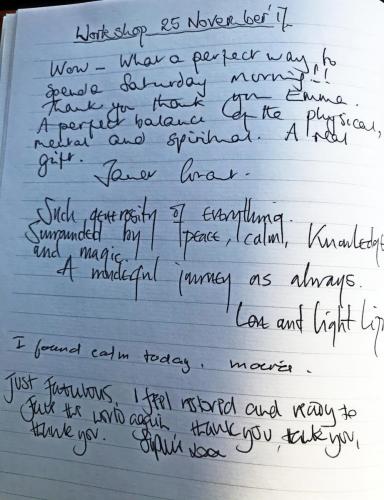 Workshop 25 November '17
Wow – What a perfect way to
spend a Saturday morning!!
Thank you thank you Emma.
A perfect balance of the physical,
mental and spiritual. A real
gift.
Janet
Such generosity of everything.
Surrounded by peace, calm, Knowledge
and magic.
A wonderful journey as always.
Love and Light
I found calm today.
Just fabulous. I feel restored and ready to
face the world again thank you, thank you,
thank you.